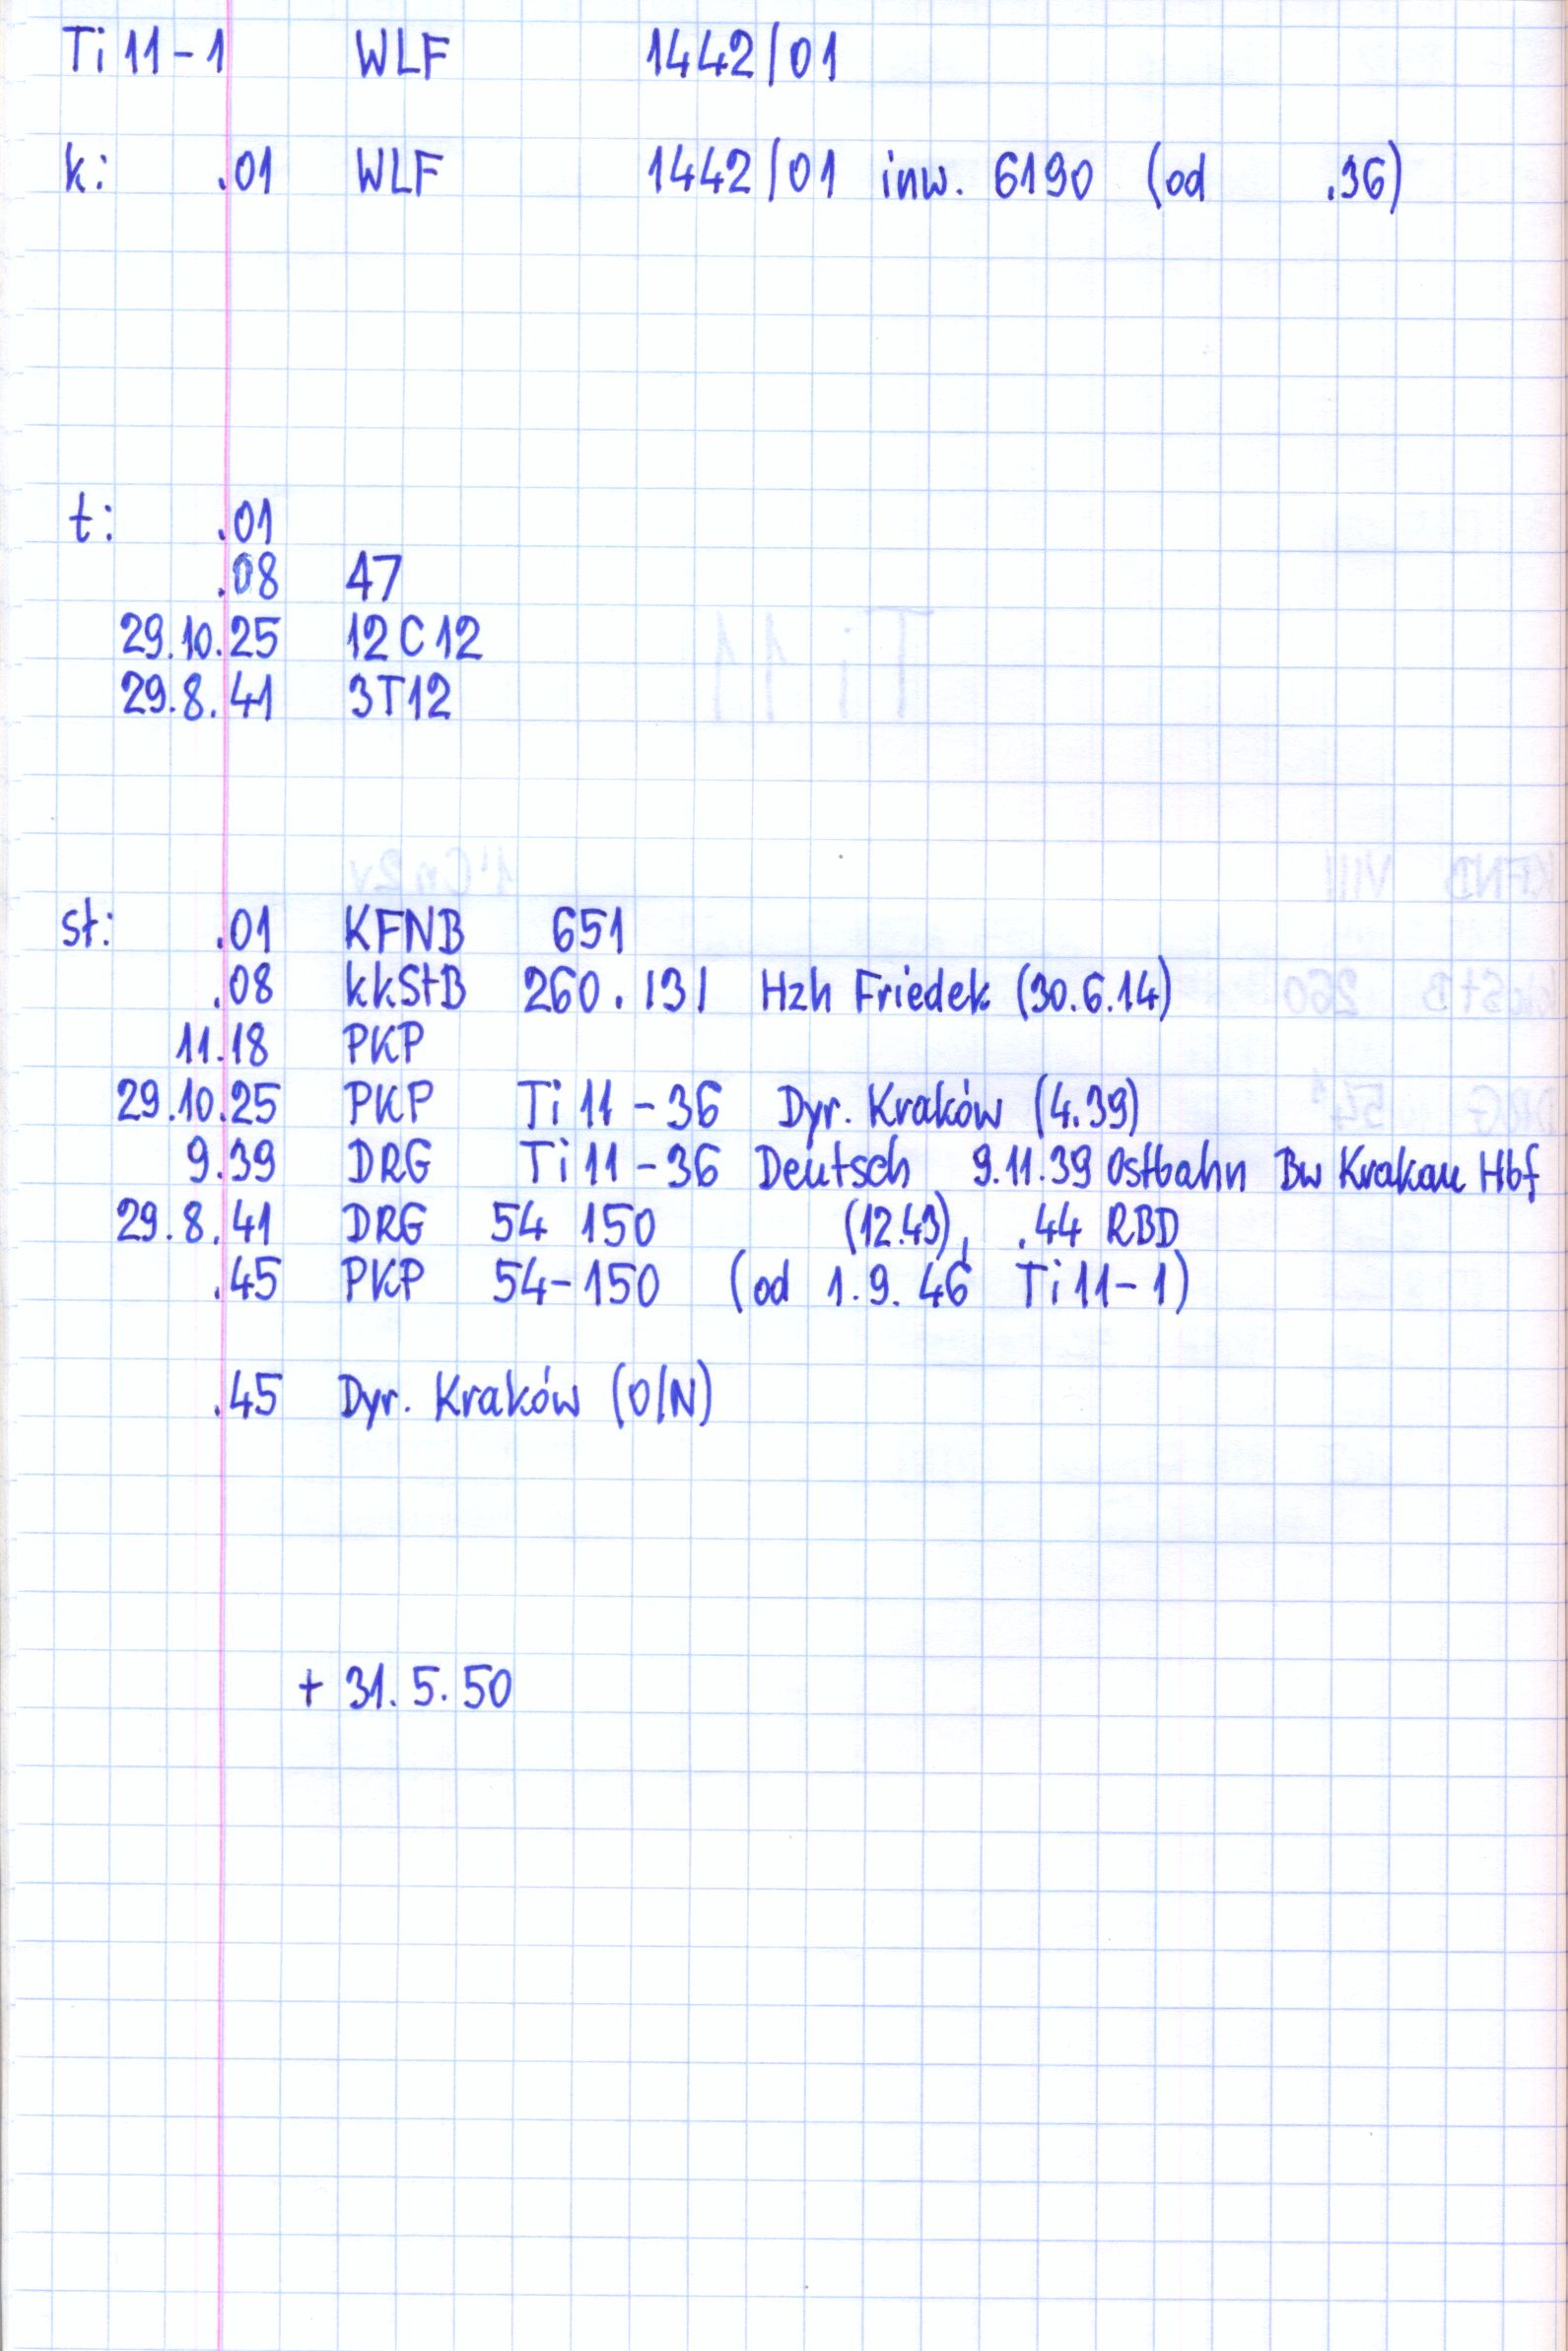 Ti 11-1 WLF 1442/01
k: .01 WLF 1442/01 inw. 6190 (od .36)
t: .01
.08 47
29.10.25 12C12
29.8.41 3T12
st: .01 KFNB 651
.08 kkStB 260.131 Hzh Friedek (30.6.14)
11.18 PKP
29.10.25 PKP Ti 11-36 Dyr. Kraków (4.39)
9.39 DRG Ti 11-36 Deutsch 9.11.39 Ostbahn Bw Krakau Hbf
29.8.41 DRG 54 150 (12.43), .44 RBD
.45 PKP 54-150 (od 1.9.46 Ti 11-1)
.45 Dyr. Kraków (O/N)
+ 31.5.50